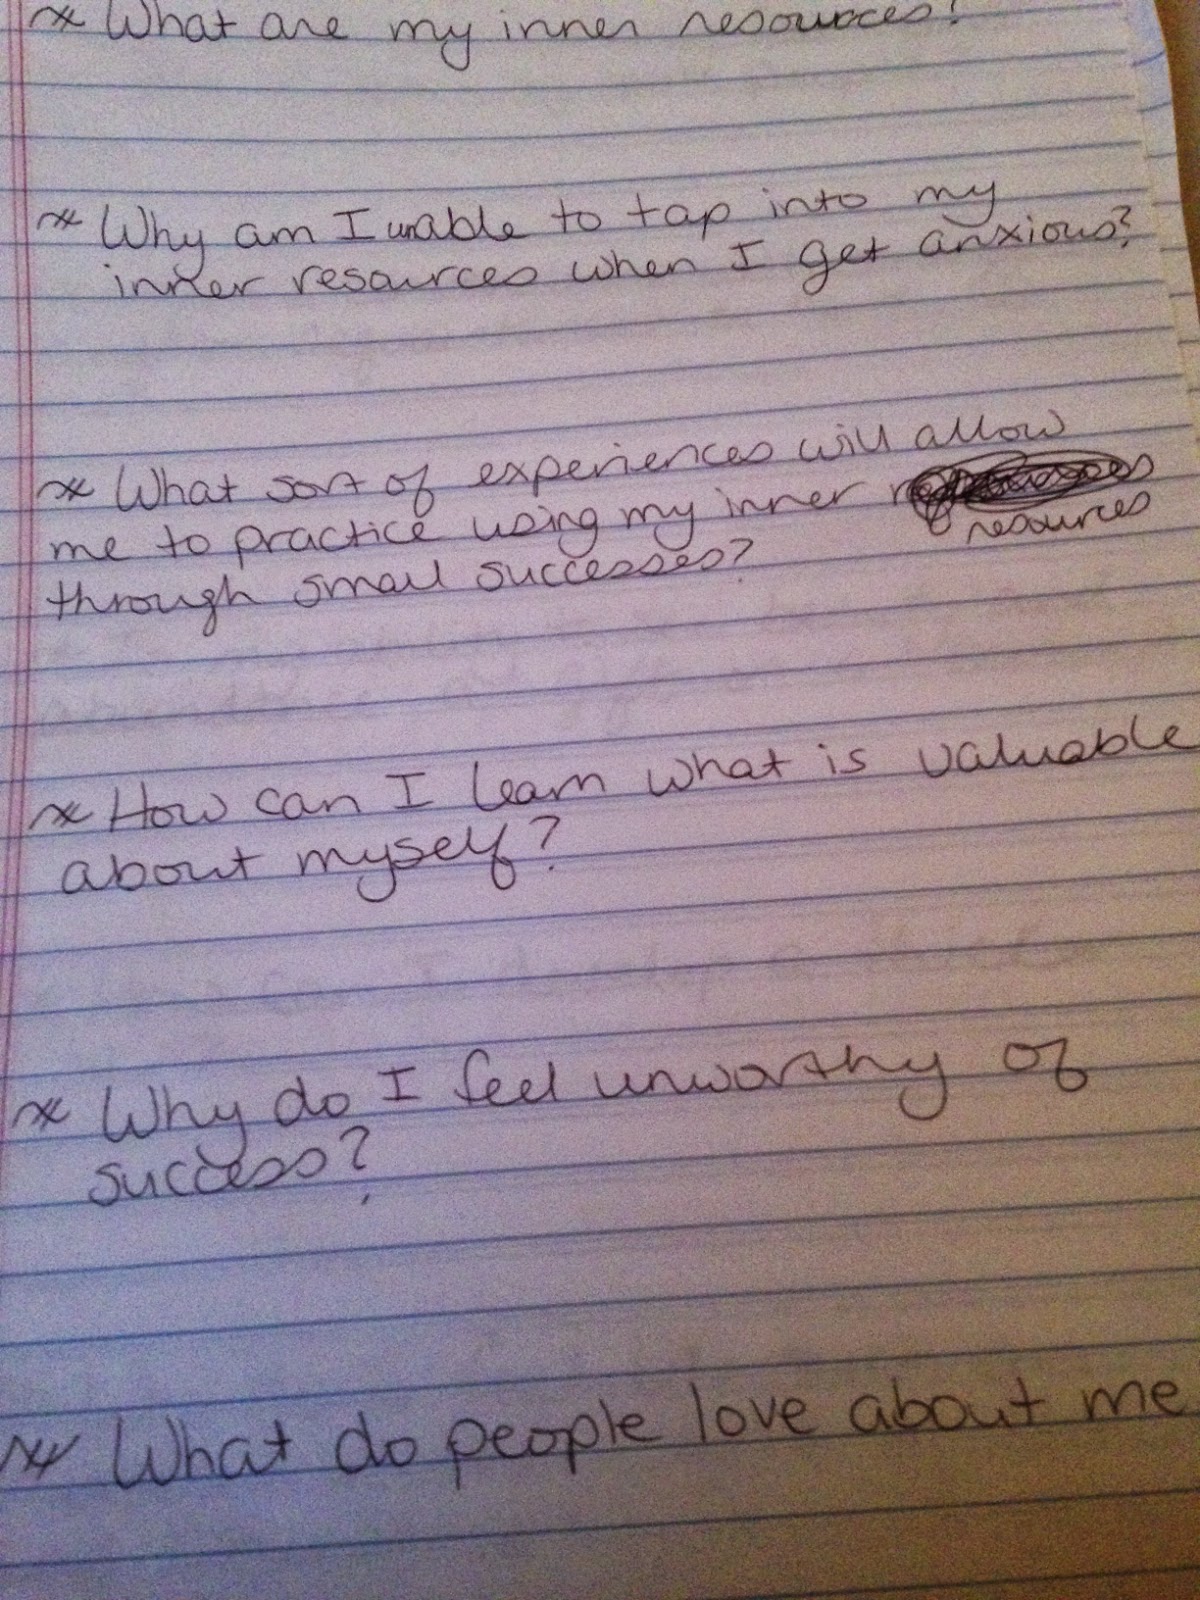 * What are my inner resources?
* Why am I unable to tap into my
inner resources when I get anxious?
* What sort of experiences will allow
me to practice using my inner
resources
through small successes?
* How can I learn what is valuable
about myself?
* Why do I feel unworthy of
success?
* What do people love about me